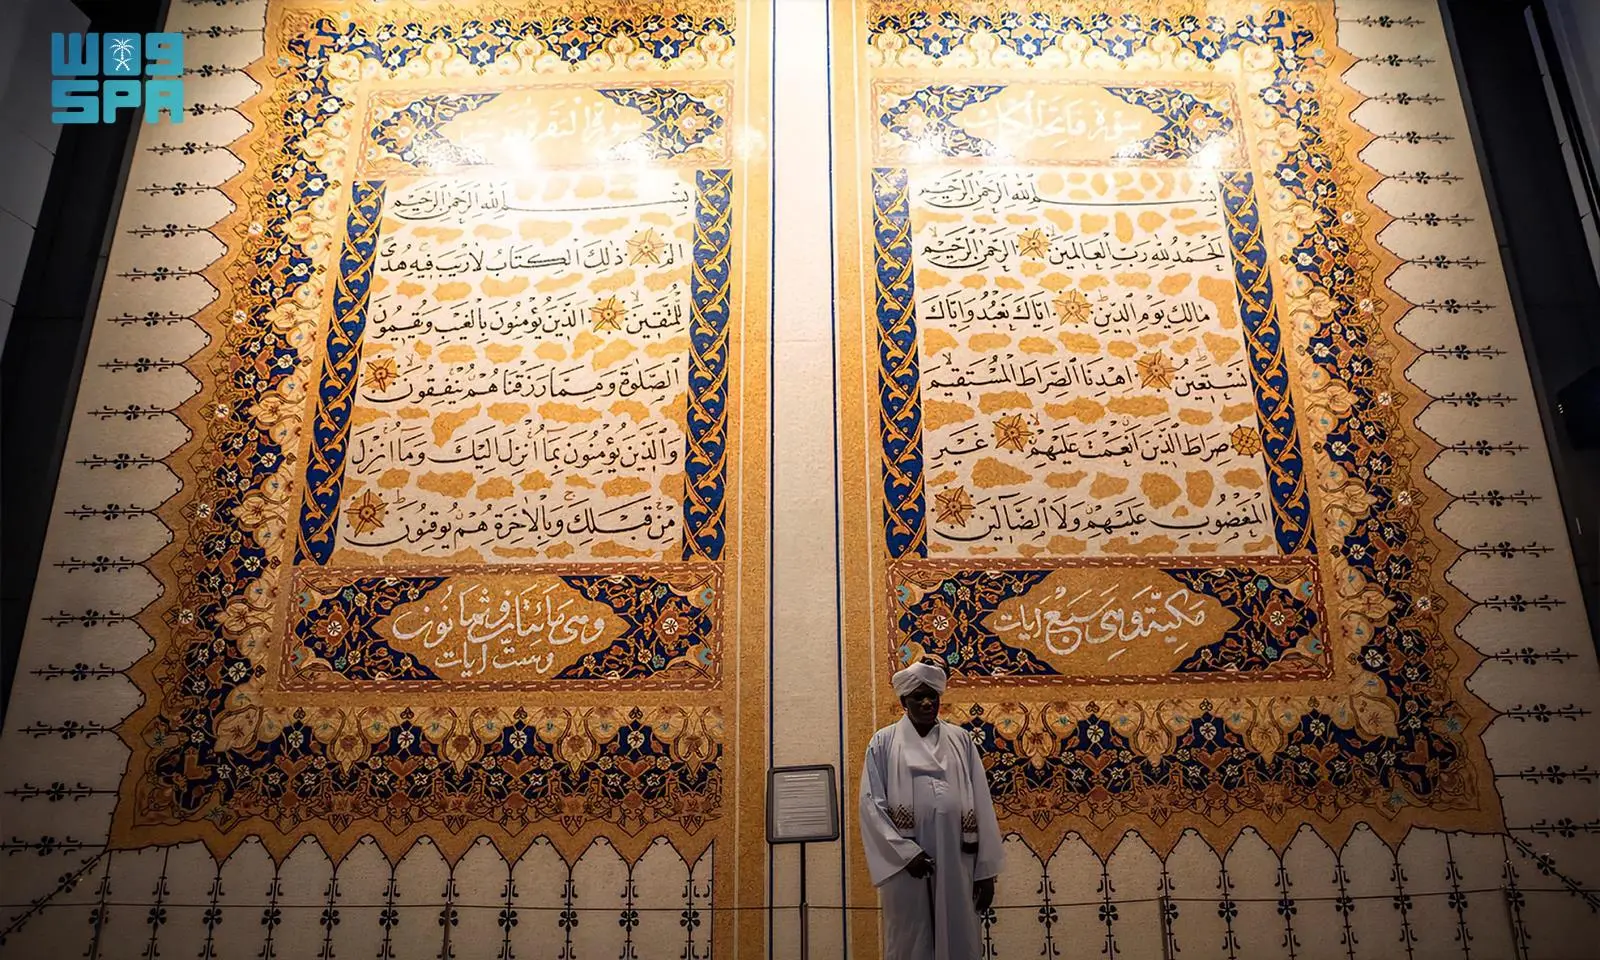 واس
SPA
سورة فاتحة الكتاب
بسم الله الرحمن الرحيم
الحمد لله رب العالمين الرحمن الرحيم
مالك يوم الدين اياك نعبد واياك
نستعين اهدنا الصراط المستقيم
صراط الذين انعمت عليهم غير
المغضوب عليهم ولا الضالين
مكية وهي سبع ايات
سورة البقرة
بسم الله الرحمن الرحيم
الم ذلك الكتاب لا ريب فيه هدى
للمتقين الذين يؤمنون بالغيب ويقيمون
الصلوة ومما رزقناهم ينفقون
والذين يؤمنون بما انزل اليك وما انزل
من قبلك وبالاخرة هم يوقنون
وهي مائتان وثمانون
وست ايات